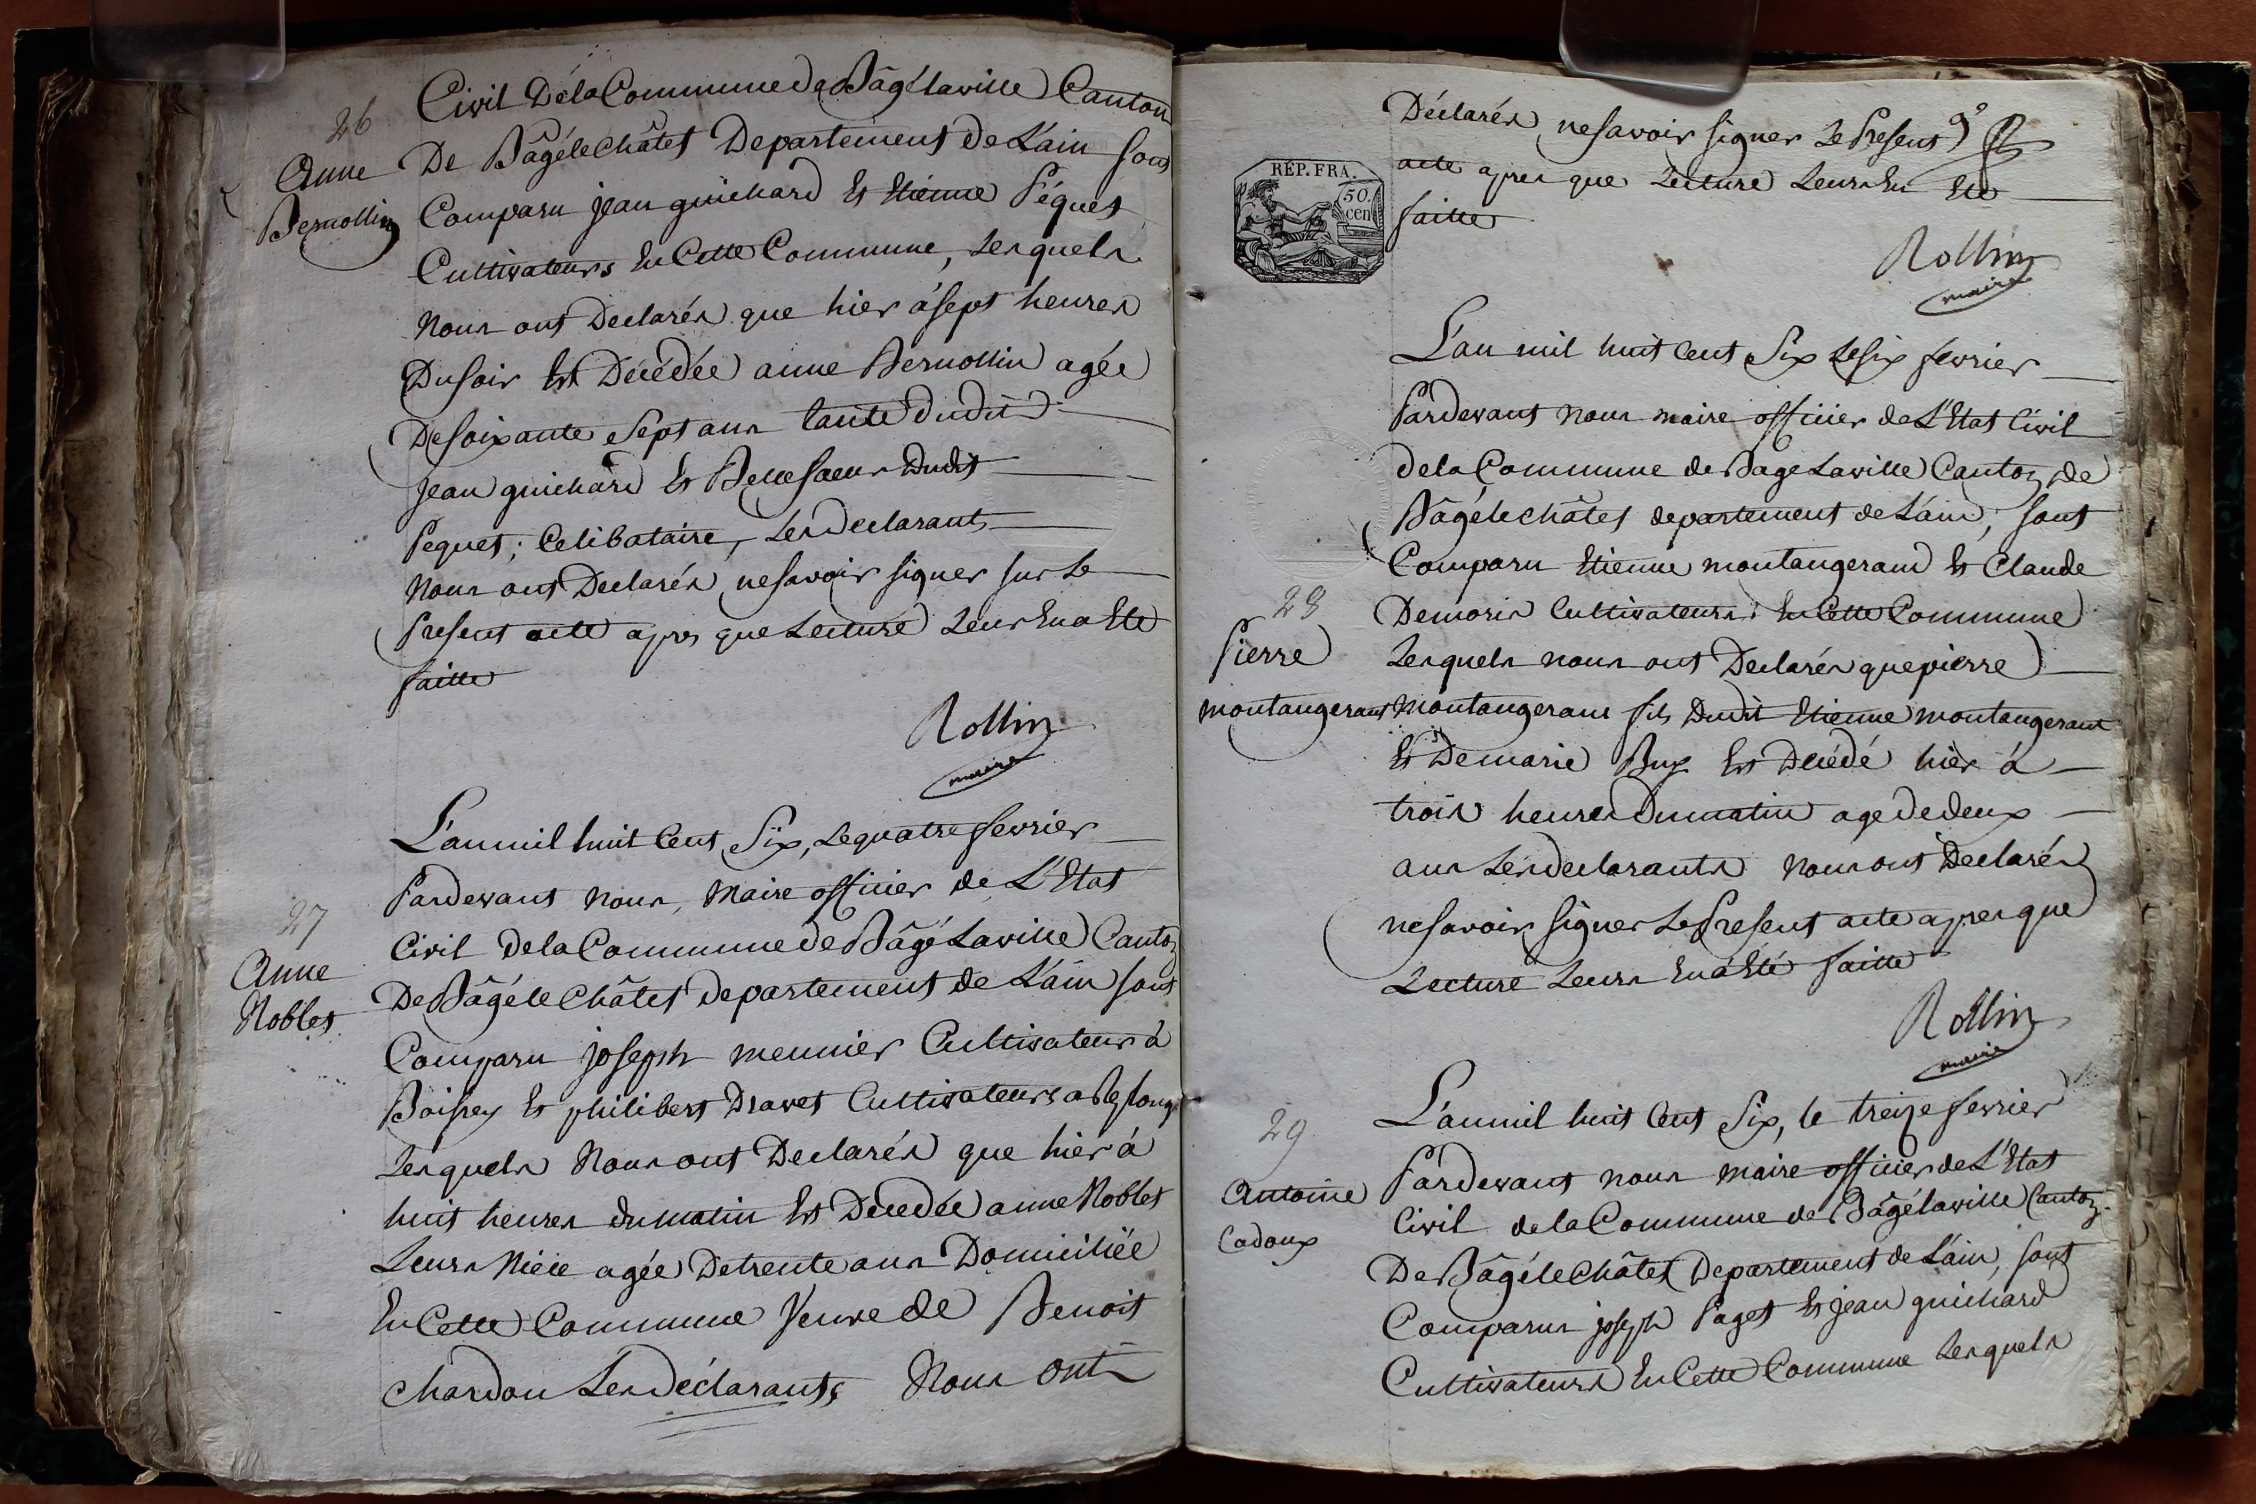 26
Anne
Bernollin
Civil De la Commune de Bâgé laville Canton
De Bâgé le Châtel Departement de L'ain sont
Comparu jean guichard Et Etienne Péquet
Cultivateurs En Cette Commune, Lesquels
Nous ont Declarés que hier à sept heures
Du soir Est Décédée anne Bernollin agée
De soixante Sept ans tante dudit
jean guichard Et Belle soeur Dudit
Pequet, Celibataire, Les declarants
Nous ont Declarés ne savoir signer sur Le
Present acte apres que Lecture Leur En a Eté
faitte
Rollin
maire
27
Anne
Noblet
L'an mil huit Cent Six, Le quatre fevrier
Pardevant Nous, Maire officier de L'Etat
Civil de la Commune de Bâgé Laville Canton
De Bâgé le Châtel Departement de L'ain sont
Comparu joseph meunier Cultivateur à
Boissey Et philibert Dravet Cultivateurs a Replonge
Lesquels Nous ont Declarés que hier à
huit heures du matin Est Décédée anne Noblet
Leurs Niéce agée De trente ans Domiciliée
En Cette Commune Veuve de Benoit
Chardon Les Déclarants Nous ont
9
Déclarés ne savoir signer Le Present
acte apres que Lecture Leurs En Eté
faitte
RÉP. FRA.
50.
cen
Rollin
maire
L'an mil huit Cent Six Le six fevrier
Pardevant Nous maire officier de L'Etat Civil
de la Commune de Bage Laville Canton de
Bâgé le châtel departement de L'ain, sont
Comparu Etienne montangerand Et Claude
Demoris Cultivateurs En Cette Commune
28
Pierre
montangerant
Lesquels nous ont Declarés que pierre
Montangerant fils Dudit Etienne montangerant
Et De marie Buy Est Décédé hier à
trois heures Du matin age de deux
ans Les declarants Nous ont Declarés
ne savoir signer Le Present acte apres que
Lecture Leurs En à Eté faitte
Rollin
maire
29
Antoine
Cadoux
L'an mil huit Cent Six, le treize fevrier
Pardevant nous maire officier de L'Etat
Civil de la Commune de Bâgé laville Canton
De Bâgé le Châtel Departement de L'ain, sont
Comparus joseph Paget Et jean guichard
Cultivateurs En Cette Commune Lesquels